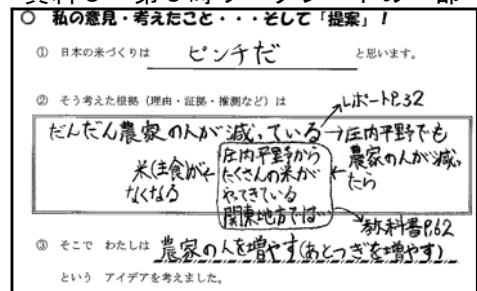 ○ 私の意見・考えたこと・・・そして「提案」！
① 日本の米づくりは ピンチだ と思います。
② そう考えた根拠（理由・証拠・推測など）は
レポートP.32
だんだん農家の人が減っている→庄内平野でも
農家の人が減っ
たら
庄内平野から
たくさんの米が
やってきている
関東地方では…
米(主食)が
なくなる
教科書P.62
③ そこで わたしは 農家の人を増やす(あとつぎを増やす)
という アイデアを考えました。